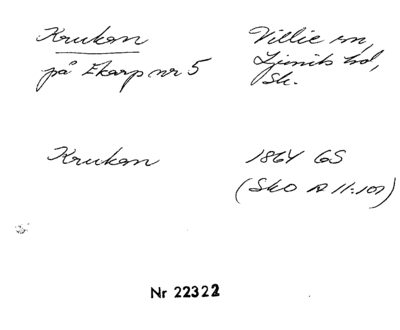 Krukan
Villie sn,
på Ekarp nr 5
Ljunits hd,
Sk.
Krukan
1864 GS
(Sko A 11:107)
Nr 22322